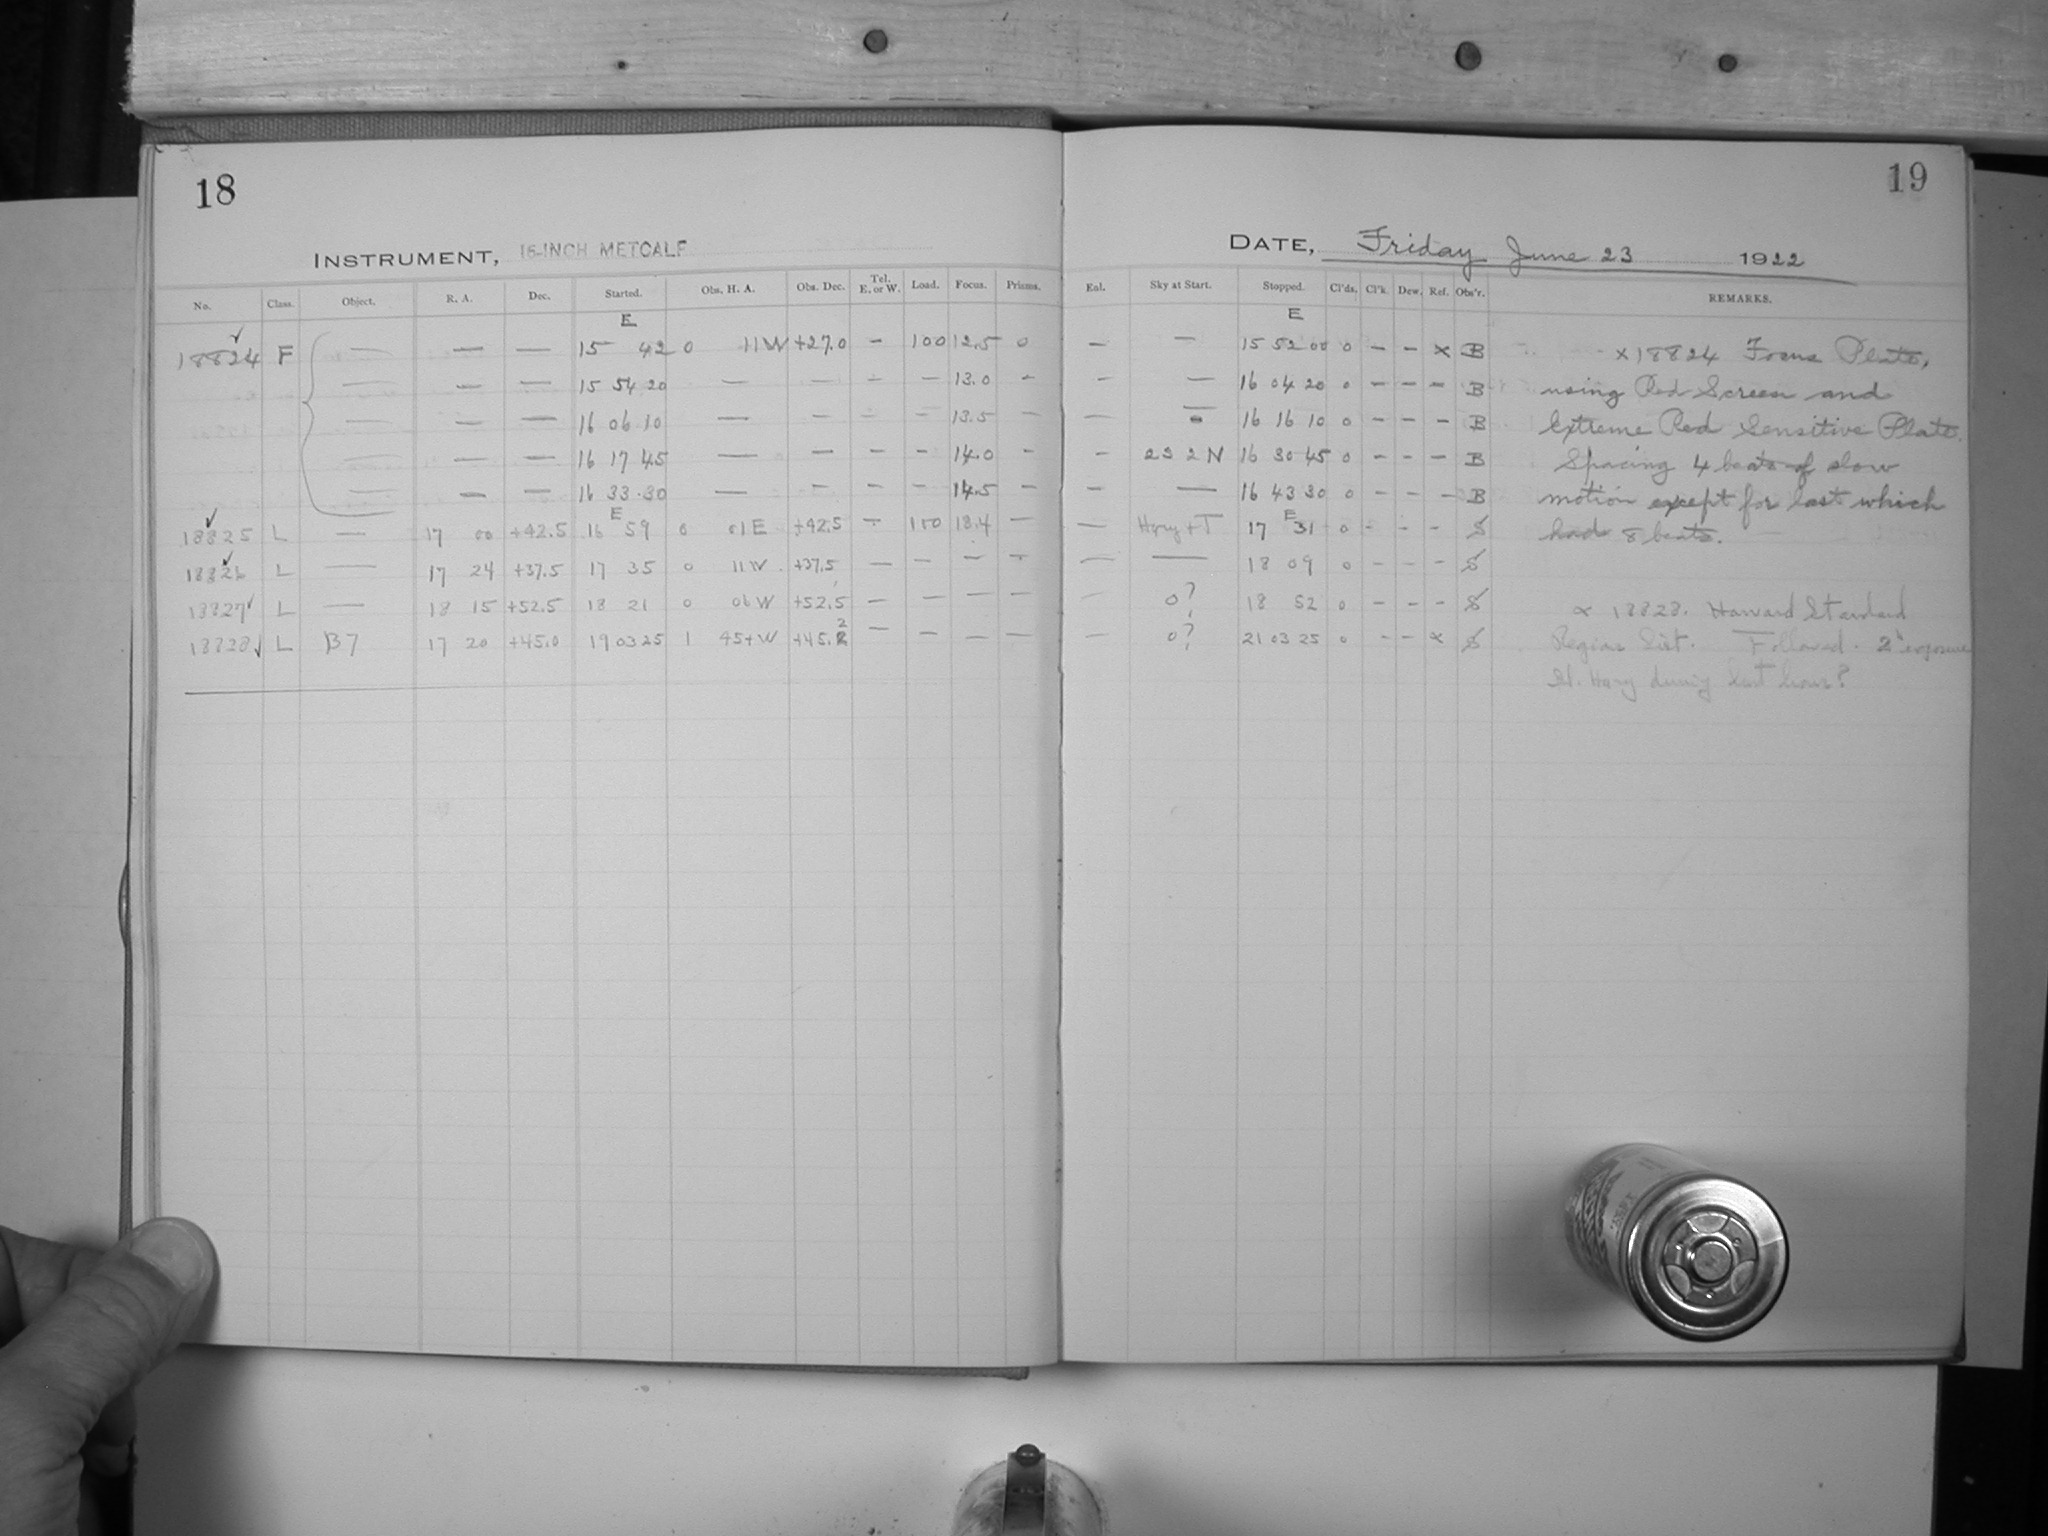 18
19
INSTRUMENT, 16-INCH METCALF
DATE, Friday June 23 1922
No. Class. Object. R. A. Dec. Started. Obs. H. A. Obs. Dec. Tel. E. or W. Load. Focus. Prisms. Eal. Sky at Start. Stopped. Cl'ds. Cl'k. Dew. Ref. Obs'r. REMARKS.
E E
18824 F — — — 15 42 0 11W +27.0 — 100 12.5 0 — — 15 52 00 0 — — x B x 18824 Focus Plate,
— — — 15 54 20 — — — — 13.0 — — — 16 04 20 0 — — — B using Red Screen and
— — — 16 06 10 — — — — 13.5 — — — 16 16 10 0 — — — B Extreme Red Sensitive Plate.
— — — 16 17 45 — — — — 14.0 — — 232N 16 30 45 0 — — — B Spacing 4 beats of slow
— — — 16 33 30 — — — — 14.5 — — — 16 43 30 0 — — — B motion except for last which
E E
18825 L — 17 00 +42.5 16 59 0 01E +42.5 — 100 13.4 — — Hazy + T 17 31 0 - - - S had 8 beats.
18826 L — 17 24 +37.5 17 35 0 11W +37.5 — — — — — — 18 09 0 - - - S
18827 L — 18 15 +52.5 18 21 0 06W +52.5 — — — — — 0? 18 52 0 - - - S x 18828. Harvard Standard
18828 L B7 17 20 +45.0 19 03 25 1 45+W +45.2 — — — — — 0? 21 03 25 0 - - x S Region List. Followed. 2h exposure
Sl. Hazy during last hour?